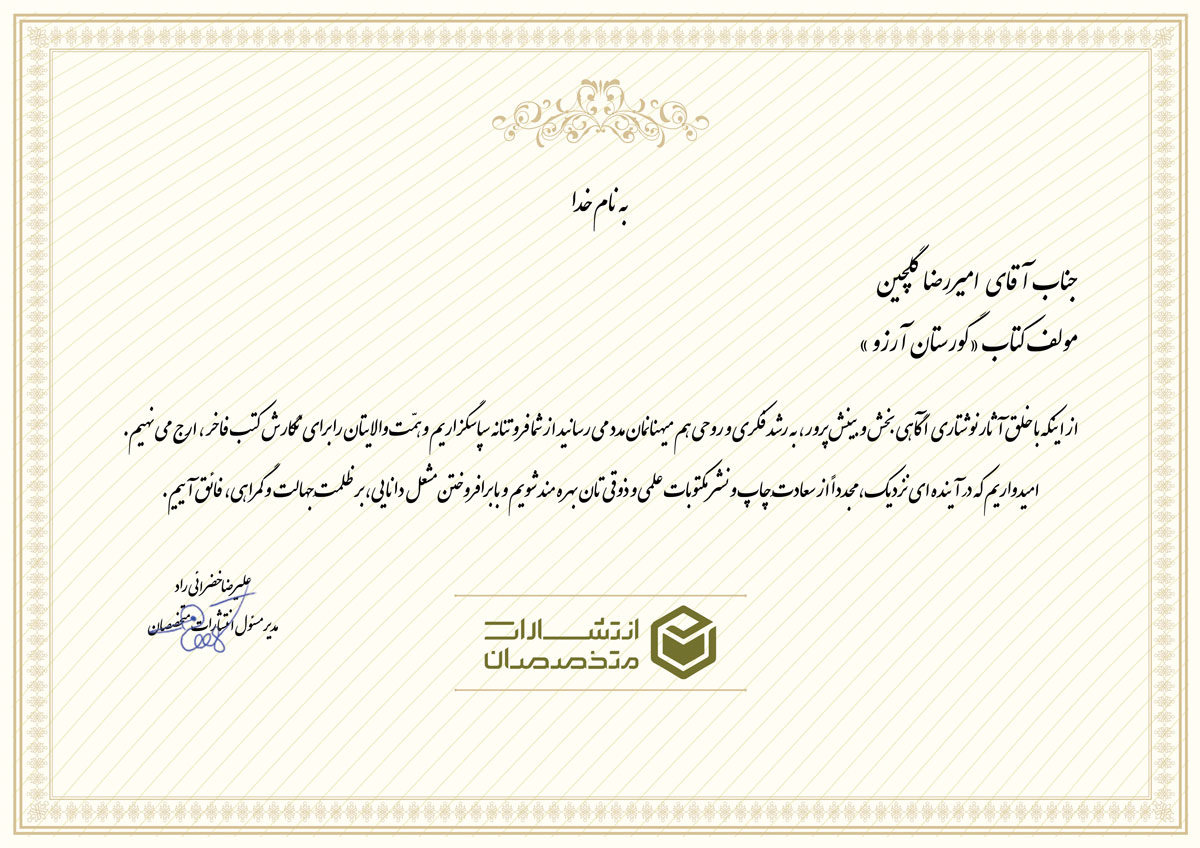 به نام خدا
جناب آقای امیررضا گلچین
مولف کتاب «گورستان آرزو»
از اینکه با خلق آثار نوشتاری آگاهی بخش و بینش پرور، به رشد فکری و روحی هم میهنانمان مدد می رسانید از شما فروتنانه سپاسگزاریم و همّت والایتان را برای نگارش کتب فاخر، ارج می نهیم.
امیدواریم که در آینده ای نزدیک، مجدداً از سعادت چاپ و نشر مکتوبات علمی و ذوقی تان بهره مند شویم و با برافروختن مشعل دانایی، بر ظلمت جهالت و گمراهی، فائق آییم.
علیرضا خضرائی راد
مدیر مسئول انتشارات متخصصان
انتشارات
متخصصان